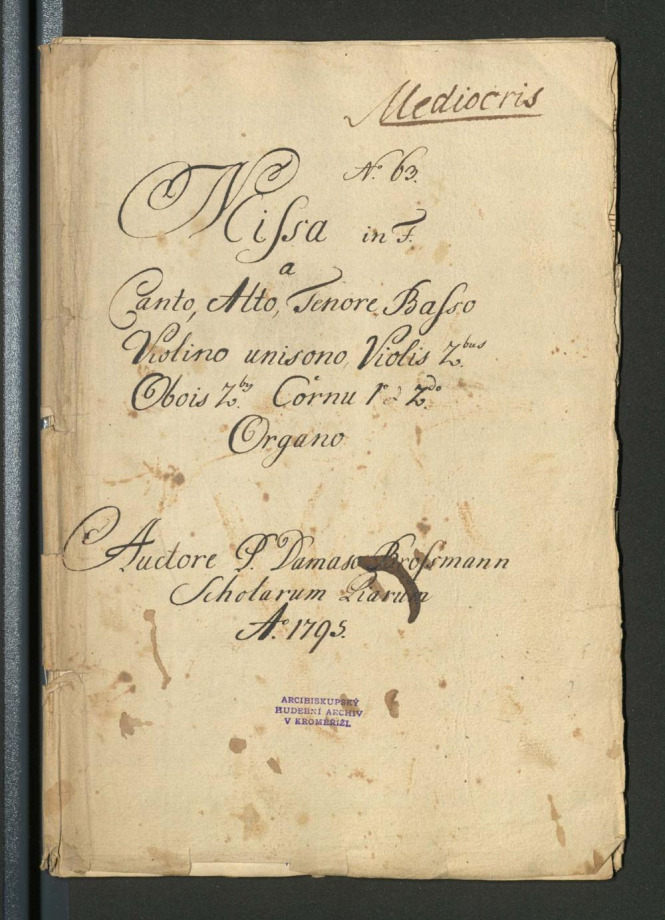 Mediocris
N.º 63.
Missa in F.
a
Canto, Alto, Tenore, Basso
Violino unisono, Violis 2.bus
Obois 2.bg Cornu 1º et 2.do
Organo
Auctore P. Damaso Brossmann
Scholarum Piarum
A.º 1795.
ARCIBISKUPSKÝ
HUDEBNÍ ARCHIV
V KROMĚŘÍŽI.